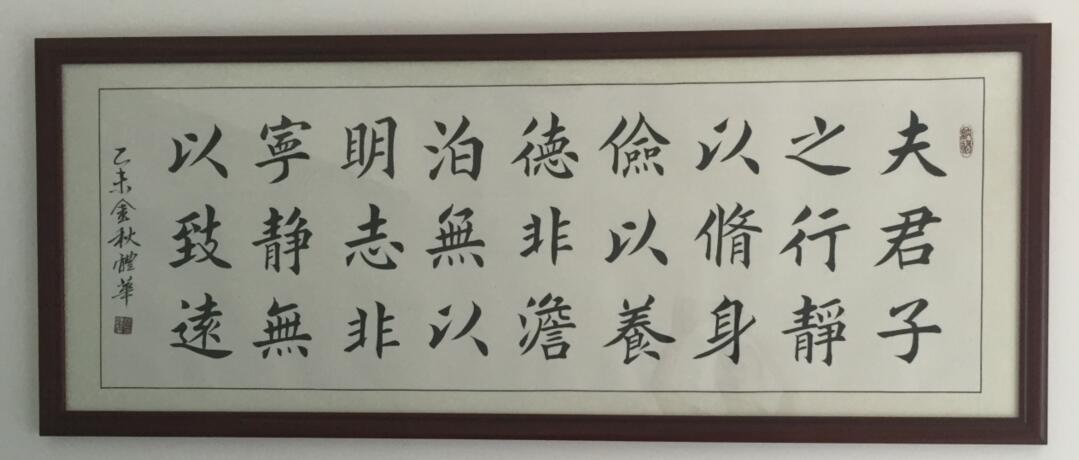 夫君子
之行靜
以脩身
儉以養
德非澹
泊無以
明志非
寧静無
以致遠
乙未金秋體華